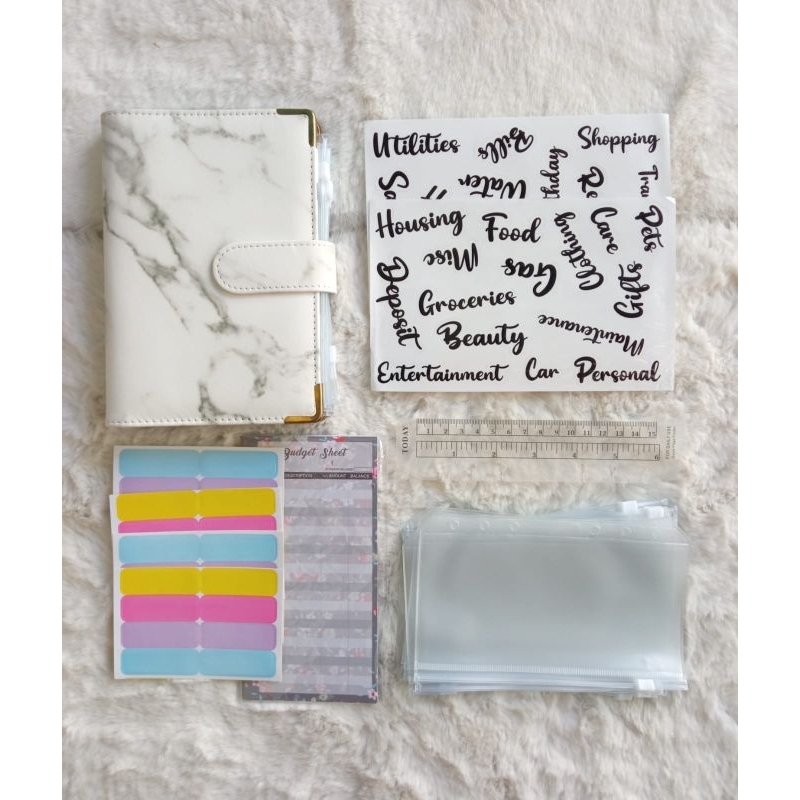 Utilities
Bills
Shopping
Water
Housing
Food
Clothing
Care
Pets
Misc
Gas
Gifts
Deposit
Groceries
Beauty
Maintenance
Entertainment Car Personal
TODAY
1 2 3 4 5 6 7 8 9 10 11 12 13 14 15
1 2 3 4 5 6
Budget Sheet
DESCRIPTION AMOUNT BALANCE